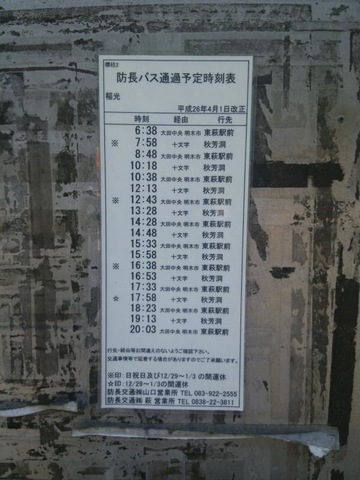 防長バス通過予定時刻表
稲光
平成26年4月1日改正
時刻 経由 行先
6:38 大田中央 明木市 東萩駅前
※ 7:58 十文字 秋芳洞
8:48 大田中央 明木市 東萩駅前
10:18 十文字 秋芳洞
10:38 大田中央 明木市 東萩駅前
12:13 十文字 秋芳洞
※ 12:43 大田中央 明木市 東萩駅前
13:28 十文字 秋芳洞
14:28 大田中央 明木市 東萩駅前
14:48 十文字 秋芳洞
15:33 大田中央 明木市 東萩駅前
15:58 十文字 秋芳洞
※ 16:38 大田中央 明木市 東萩駅前
16:53 十文字 秋芳洞
17:33 大田中央 明木市 東萩駅前
☆ 17:58 十文字 秋芳洞
18:23 大田中央 明木市 東萩駅前
19:13 十文字 秋芳洞
20:03 大田中央 明木市 東萩駅前
行先・経由等お間違えのないようご確認下さい。
交通事情等で延着する場合がありますのでご了承願います。
※印:日祝日及び12/29~1/3の間運休
☆印:12/29~1/3の間運休
防長交通㈱山口営業所 TEL 083-922-2555
防長交通㈱ 萩 営業所 TEL 0838-22-3811